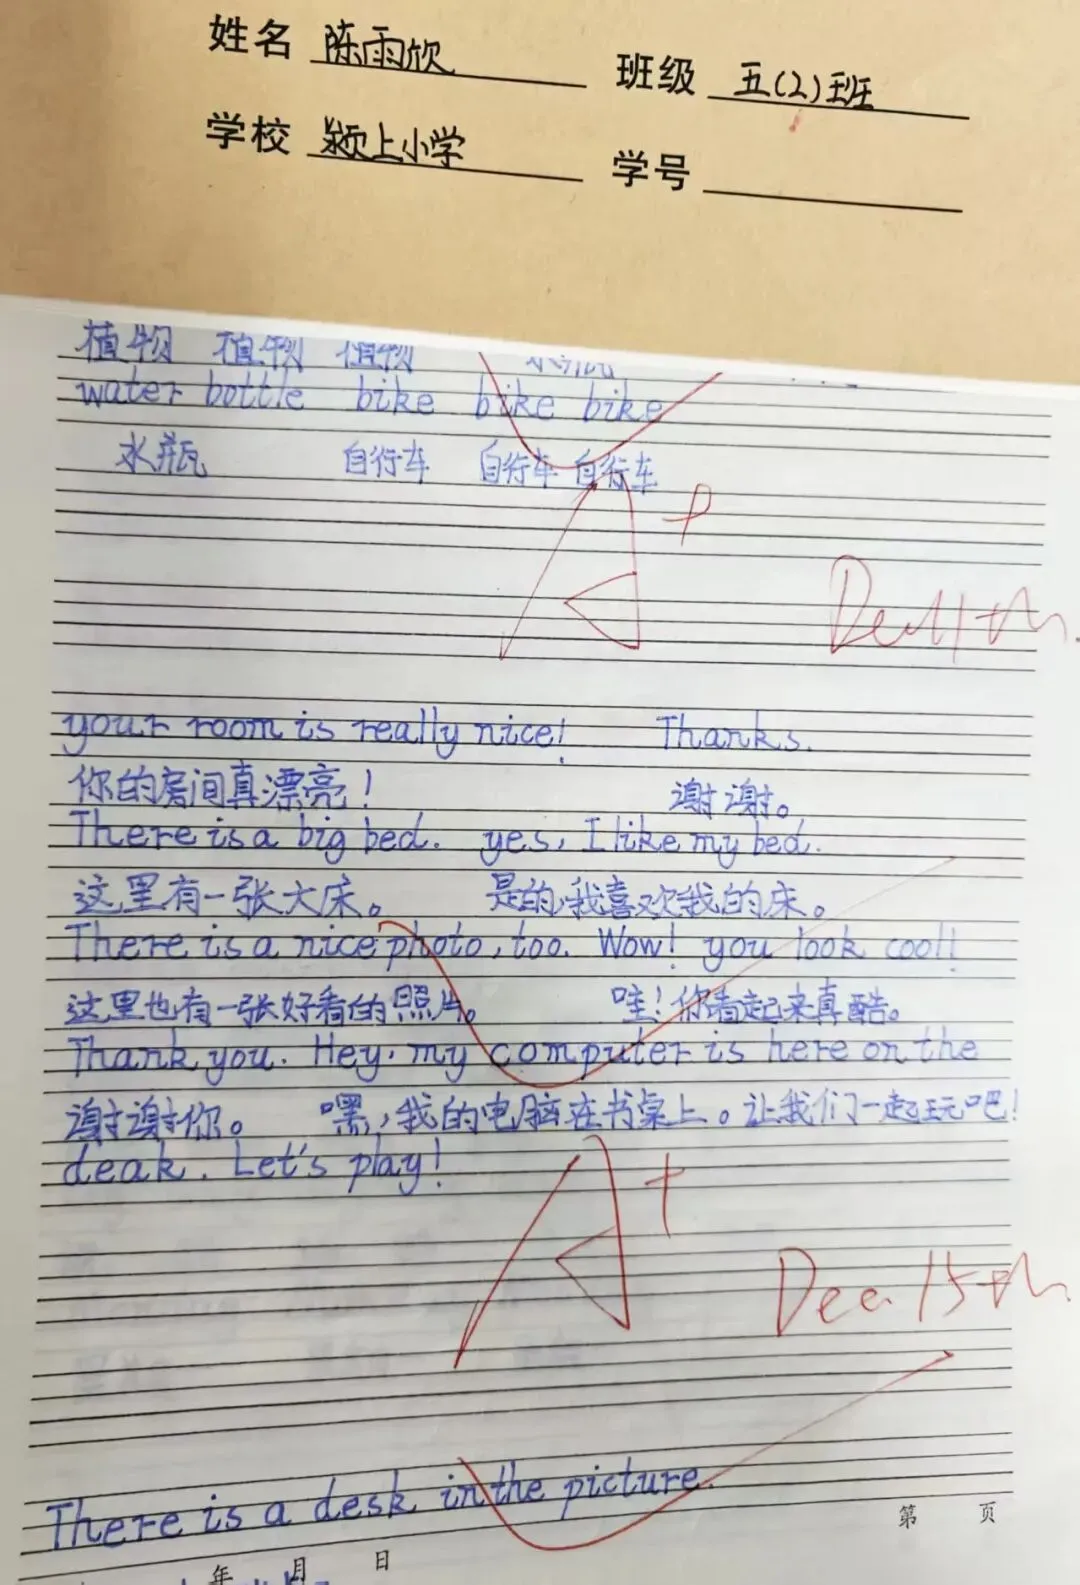 姓名 陈雨欣 班级 五(2)班
学校 颍上小学 学号
植物 植物 植物
water bottle bike bike bike
水瓶 自行车 自行车 自行车
A+
your room is really nice! Thanks.
你的房间真漂亮! 谢谢。
There is a big bed. yes, I like my bed.
这里有一张大床。 是的,我喜欢我的床。
There is a nice photo, too. Wow! you look cool!
这里也有一张好看的照片。 哇!你看起来真酷。
Thank you. Hey, my computer is here on the
谢谢你。 嘿,我的电脑在书桌上。让我们一起玩吧!
deak. Let's play!
A+
Dec. 15th.
There is a desk in the picture.
第 页
年 月 日